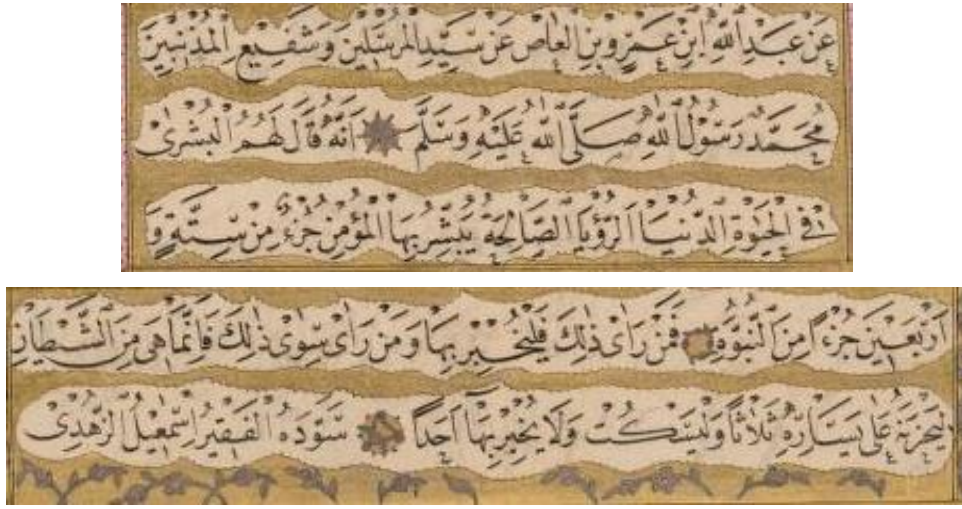 عَنْ عَبْدِ اللّٰهِ ابْنِ عَمْرِو بْنِ الْعَاصِ عَنْ سَيِّدِ الْمُرْسَلِينَ وَشَفِيعِ الْمُذْنِبِينَ
مُحَمَّدٍ رَسُولِ اللّٰهِ صَلَّى اللّٰهُ عَلَيْهِ وَسَلَّمَ اَنَّهُ قَالَ لَهُمُ الْبُشْرٰى
فِي الْحَيٰوةِ الدُّنْيَا اَلرُّؤْيَا الصَّالِحَةُ يُبَشَّرُ بِهَا الْمُؤْمِنُ جُزْءٌ مِنْ سِتَّةٍ وَ
اَرْبَعِينَ جُزْءًا مِنَ النُّبُوَّةِ فَمَنْ رَاٰى ذٰلِكَ فَلْيُخْبِرْ بِهَا وَمَنْ رَاٰى سِوٰى ذٰلِكَ فَاِنَّمَا هِيَ مِنَ الشَّيْطَانِ
لِيَحْزُنَهُ عَلٰى يَسَارِهِ ثَلَاثًا وَلْيَسْكُتْ وَلَا يُخْبِرْ بِهَا اَحَدًا سَوَّدَهُ الْفَقِيرُ اِسْمٰعِيلُ الزُّهْدِى